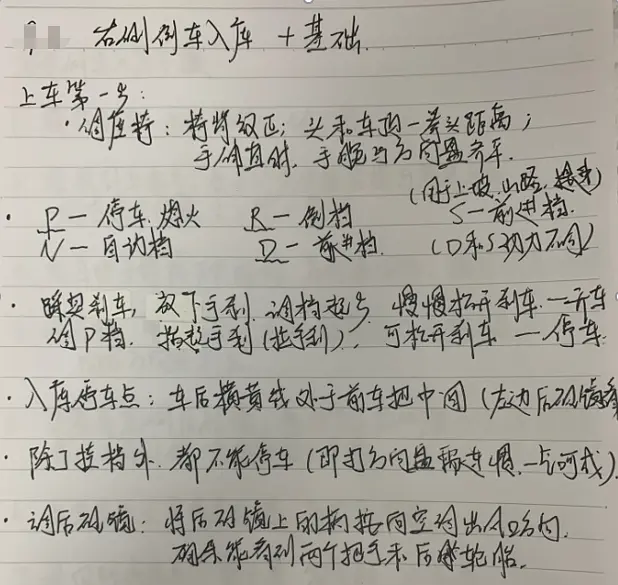 右侧倒车入库 + 基础
上车第一步:
·调座椅: 椅背放正; 头和车顶一拳头距离;
手伸直时, 手腕与方向盘齐平.
(用于上坡、山路、)
· P — 停车、熄火 R — 倒档 S — 前进档.
N — 自动档 D — 前进档. (D和S动力不同)
· 踩刹车, 放下手刹, 调档起步, 慢慢松开刹车. — 开车
调P档. 拉起手刹(拉手刹), 可松开刹车 — 停车.
· 入库停车点: 车后横黄线处于前车把中间 (左边后视镜看
· 除了换档外. 都不能停车 (即打方向盘
· 调后视镜: 将后视镜上的按向空对出AD方向.
确保能看到两个把手和后轮胎.